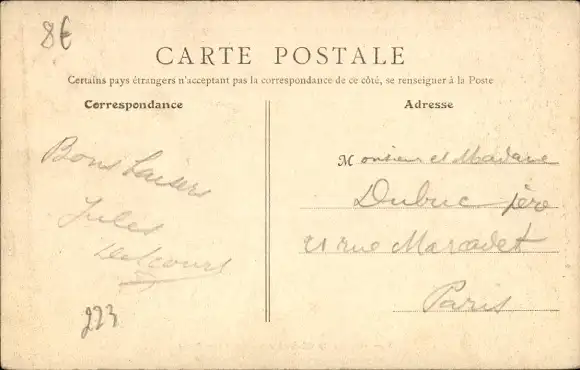 8€
CARTE POSTALE
Certains pays étrangers n'acceptant pas la correspondance de ce côté, se renseigner à la Poste
Correspondance
Bons baisers
Jules
Delcourt
223
Adresse
Monsieur et Madame
Dubuc père
21 rue Marcadet
Paris